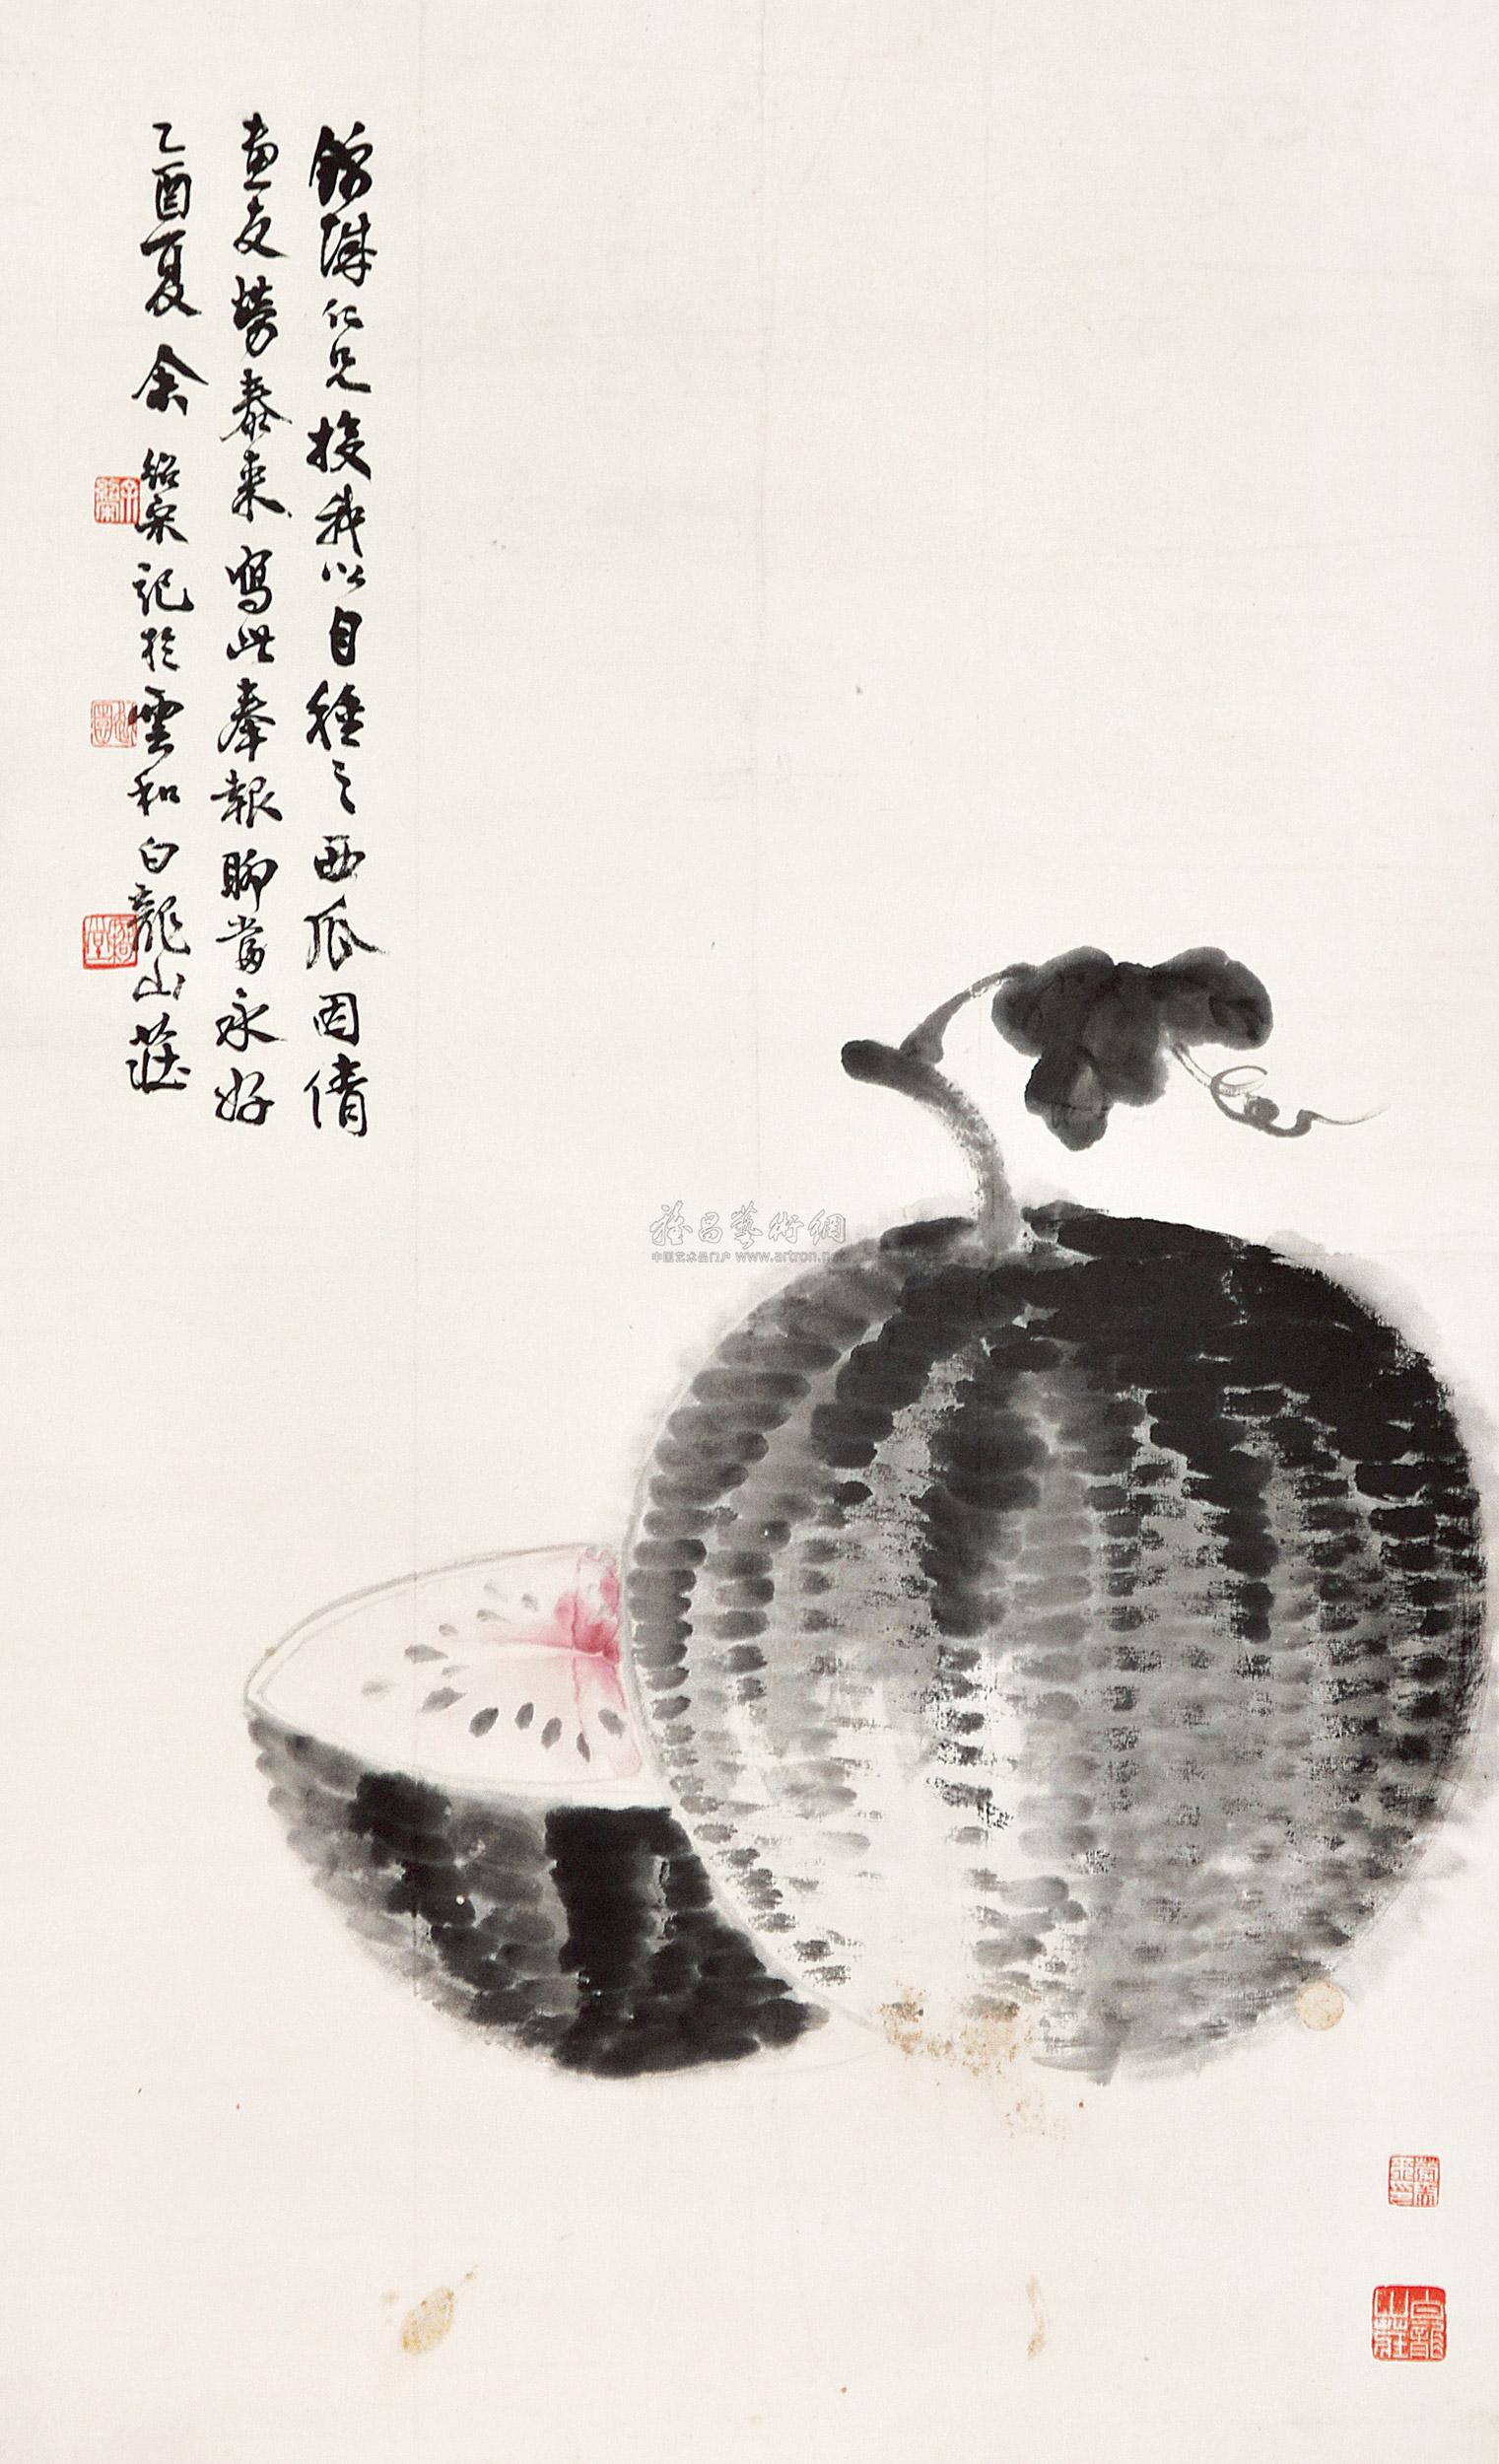 錦仁兄投我以自種之西瓜因倩
畫友勞泰來寫此奉報聊當永好
乙酉夏余紹宋記於雲和白龍山莊
雅昌藝術網
中国艺术品门户 www.artron.net
白龍山莊